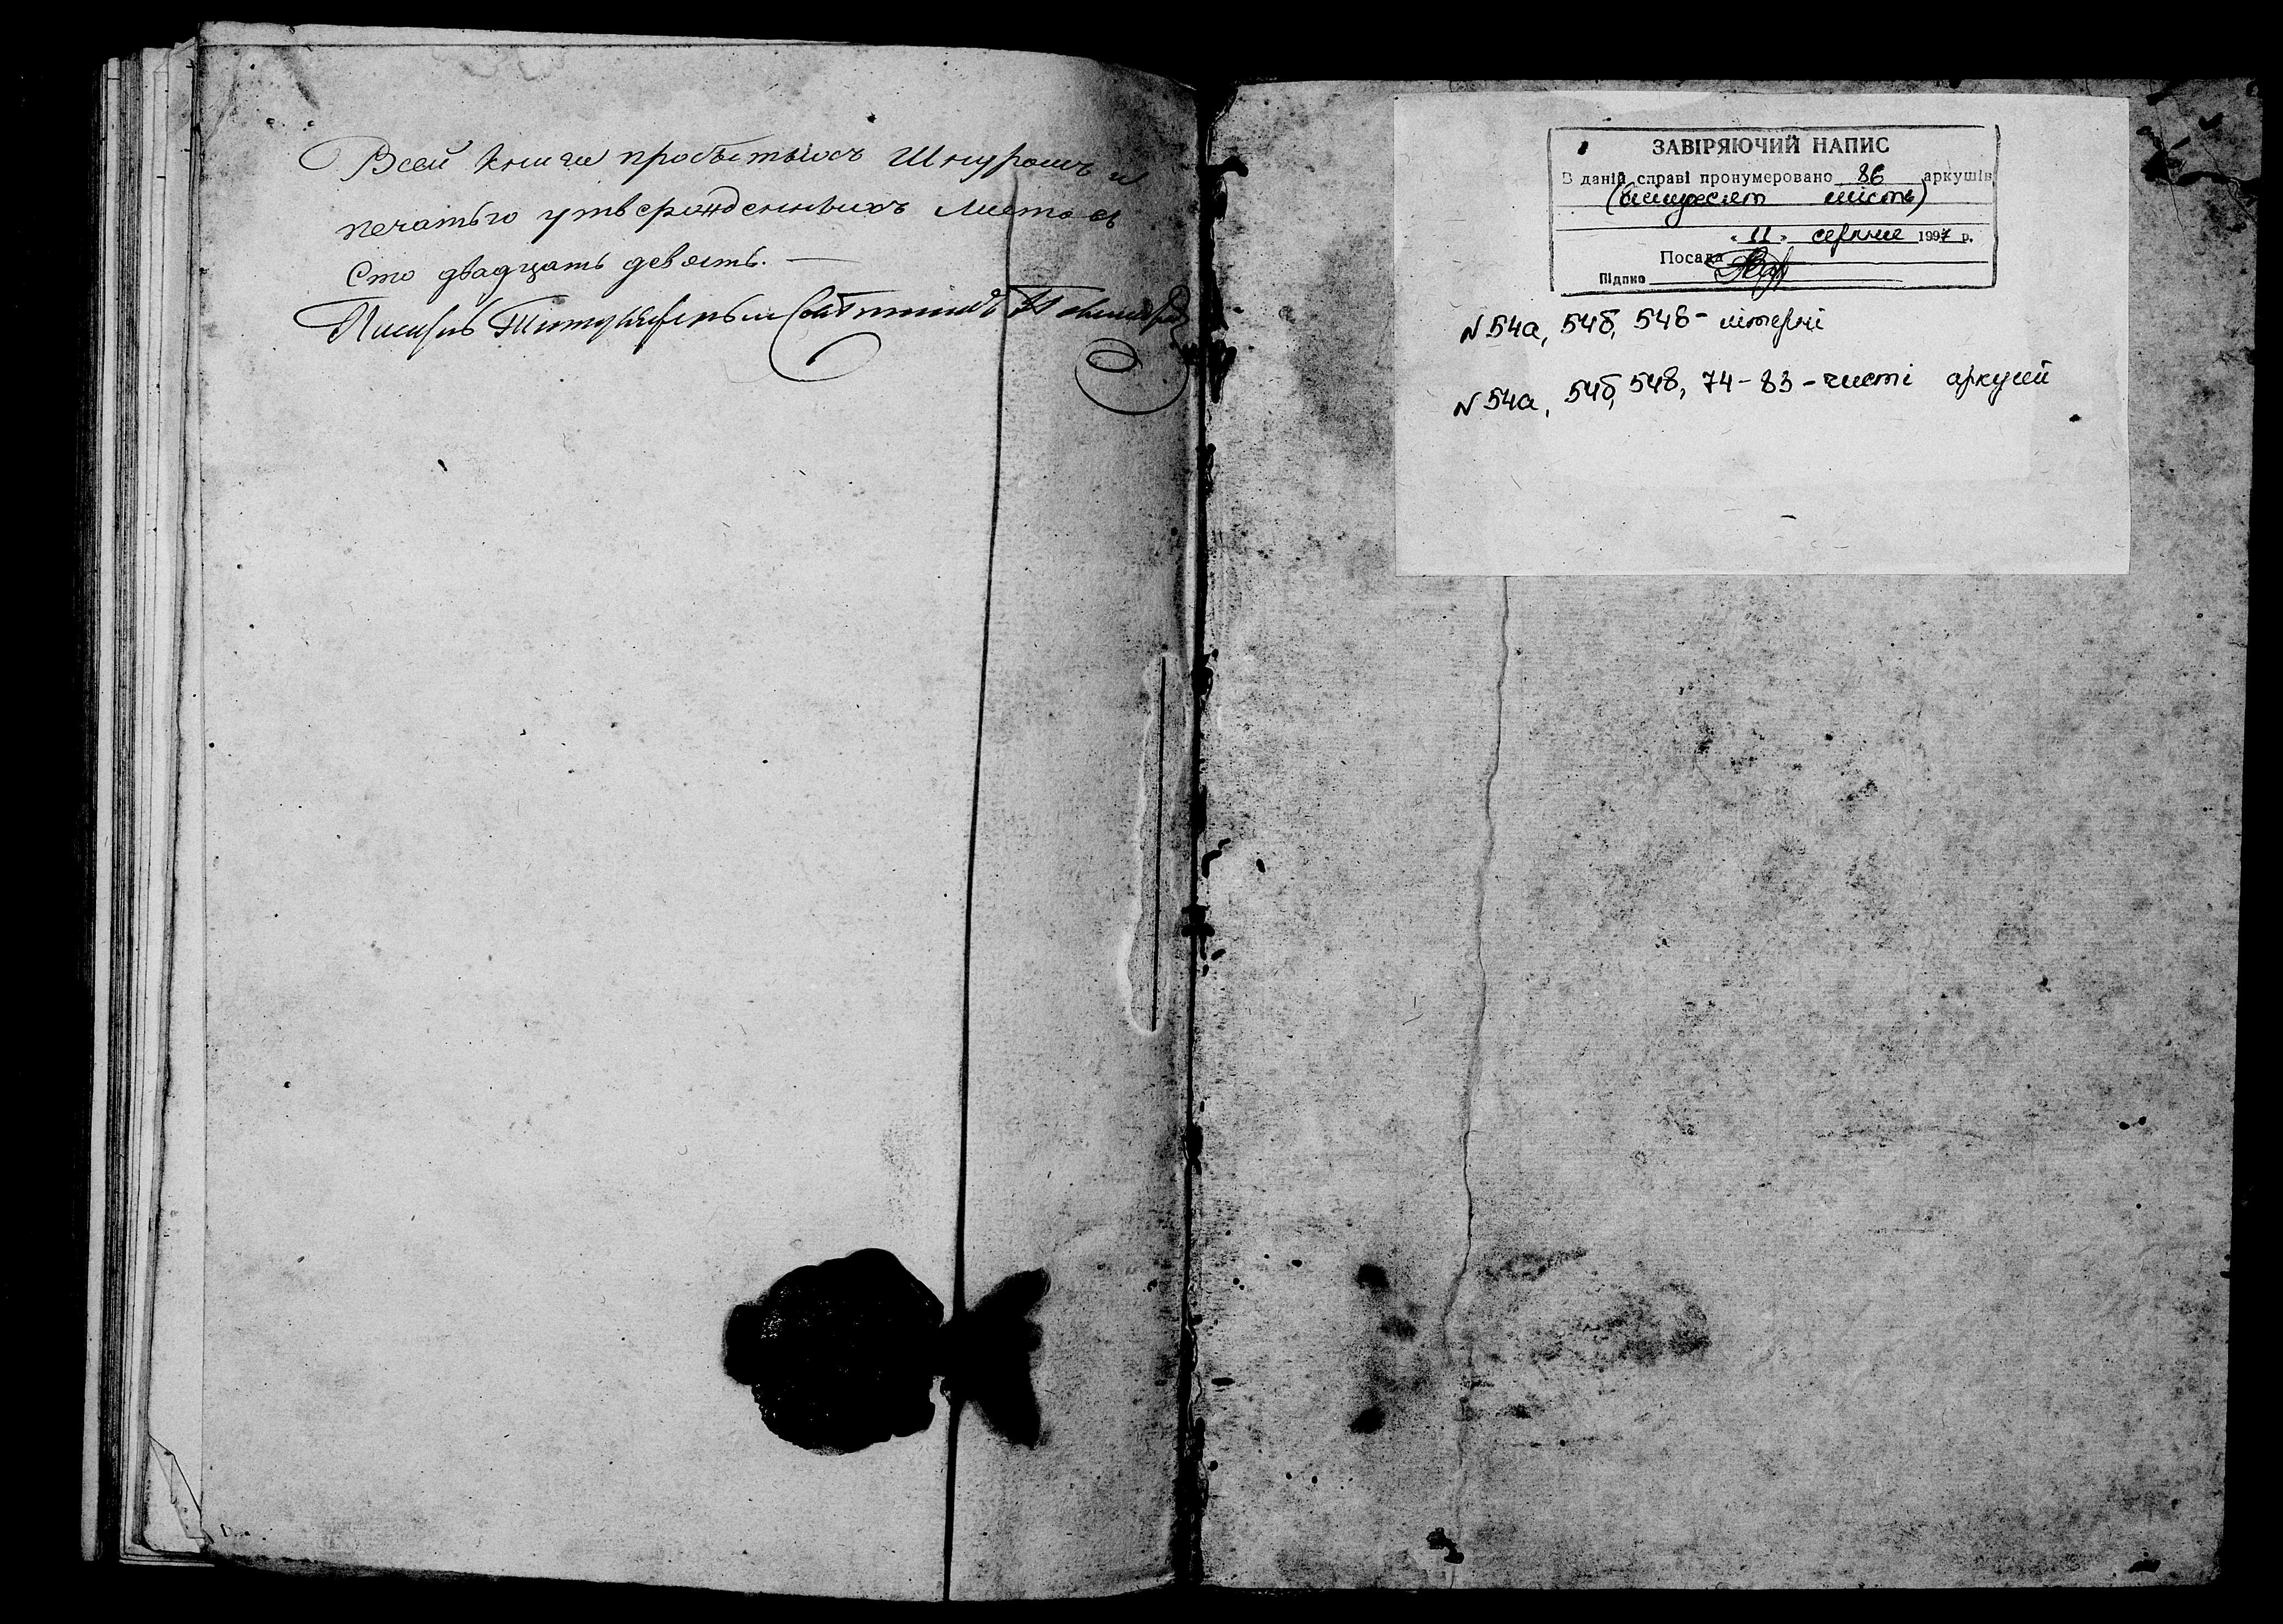 Всей книги пробытыхъ Шнуромъ и
печатью утвержденныхъ листовъ
Сто двадцать девять. —
Писарь Титулярный Советникъ
ЗАВІРЯЮЧИЙ НАПИС
В даній справі пронумеровано 86 аркушів
(вісімдесят шість)
« 11 » серпня 1997 р.
Посада
Підпис
N 54а, 54б, 54в - літерні
N 54а, 54б, 54в, 74-83 - чисті аркуші